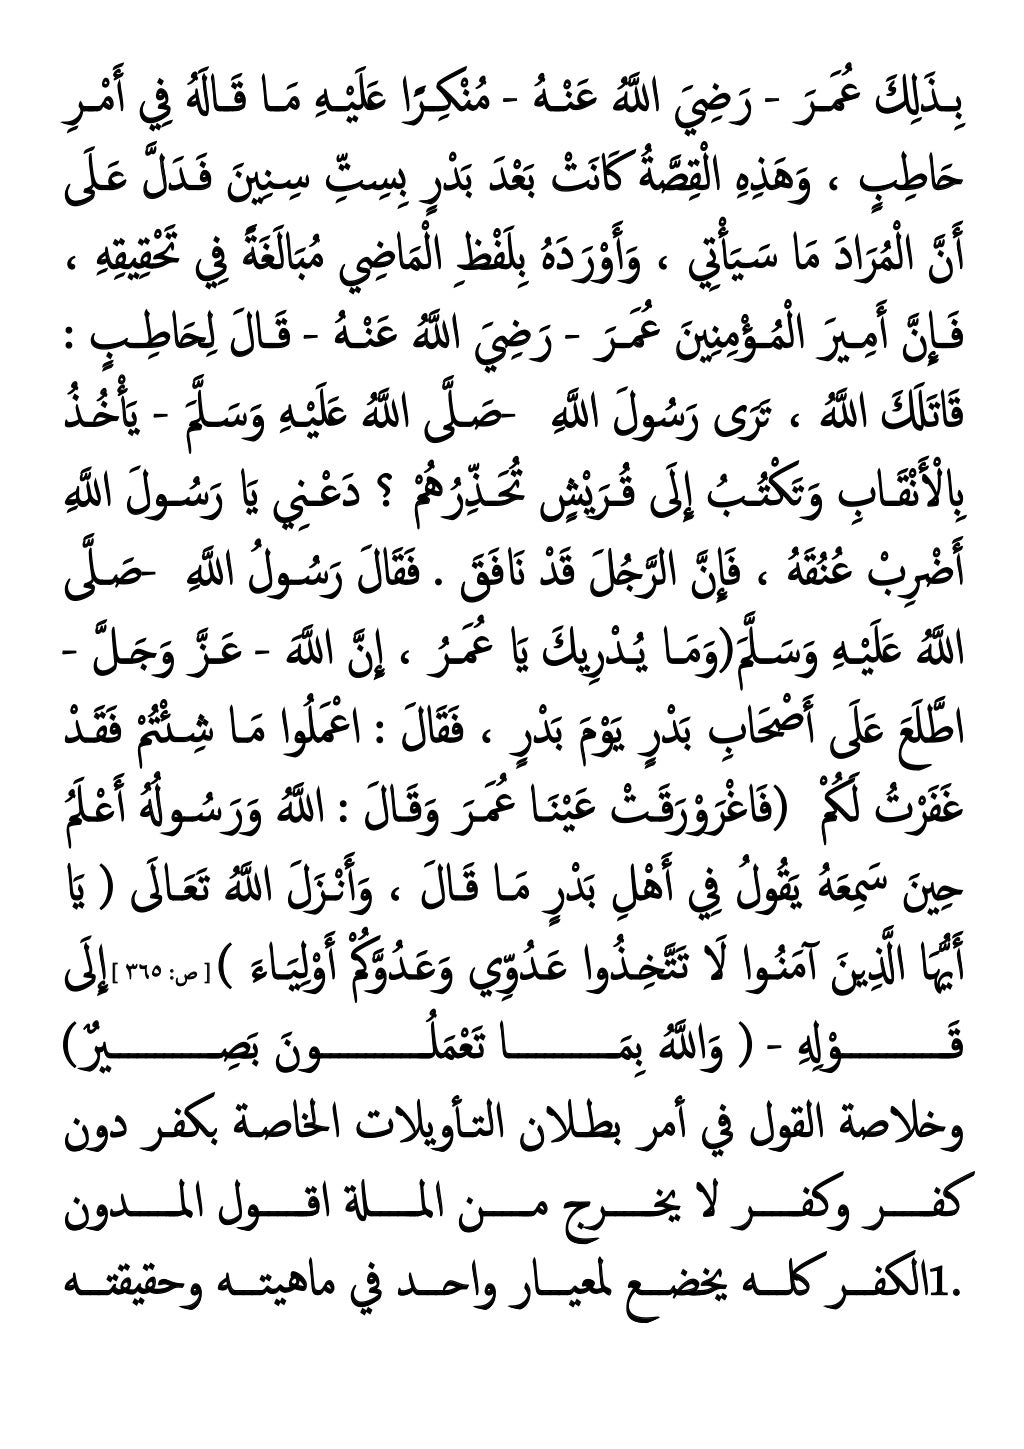 بِذَلِكَ عُمَرَ - رَضِيَ اللَّهُ عَنْهُ - مُنْكِرًا عَلَيْهِ مَا قَالَهُ فِي أَمْرِ
حَاطِبٍ ، وَهَذِهِ الْقِصَّةُ كَانَتْ بَعْدَ بَدْرٍ بِسِتِّ سِنِينَ فَدَلَّ عَلَى
أَنَّ الْمُرَادَ مَا سَيَأْتِي ، وَأَوْرَدَهُ بِلَفْظِ الْمَاضِي مُبَالَغَةً فِي تَحْقِيقِهِ ،
فَإِنَّ أَمِيرَ الْمُؤْمِنِينَ عُمَرَ - رَضِيَ اللَّهُ عَنْهُ - قَالَ لِحَاطِبٍ :
قَاتَلَكَ اللَّهُ ، تَرَى رَسُولَ اللَّهِ -صَلَّى اللَّهُ عَلَيْهِ وَسَلَّمَ - يَأْخُذُ
بِالْأَنْقَابِ وَتَكْتُبُ إِلَى قُرَيْشٍ تُحَذِّرُهُمْ ؟ دَعْنِي يَا رَسُولَ اللَّهِ
أَضْرِبْ عُنُقَهُ ، فَإِنَّ الرَّجُلَ قَدْ نَافَقَ . فَقَالَ رَسُولُ اللَّهِ -صَلَّى
اللَّهُ عَلَيْهِ وَسَلَّمَ(وَمَا يُدْرِيكَ يَا عُمَرُ ، إِنَّ اللَّهَ - عَزَّ وَجَلَّ -
اطَّلَعَ عَلَى أَصْحَابِ بَدْرٍ يَوْمَ بَدْرٍ ، فَقَالَ : اعْمَلُوا مَا شِئْتُمْ فَقَدْ
غَفَرْتُ لَكُمْ (فَاغْرَوْرَقَتْ عَيْنَا عُمَرَ وَقَالَ : اللَّهُ وَرَسُولُهُ أَعْلَمُ
حِينَ سَمِعَهُ يَقُولُ فِي أَهْلِ بَدْرٍ مَا قَالَ ، وَأَنْزَلَ اللَّهُ تَعَالَى ( يَا
أَيُّهَا الَّذِينَ آمَنُوا لَا تَتَّخِذُوا عَدُوِّي وَعَدُوَّكُمْ أَوْلِيَاءَ )[ ص: ٣٦٥ ]إِلَى
قَوْلِهِ - ( وَاللَّهُ بِمَا تَعْمَلُونَ بَصِيرٌ)
وخلاصة القول في أمر بطلان التأويلات الخاصة بكفر دون
كفر وكفر لا يخرج من الملة اقول المدون
.1الكفر كله يخضع لمعيار واحد في ماهيته وحقيقته